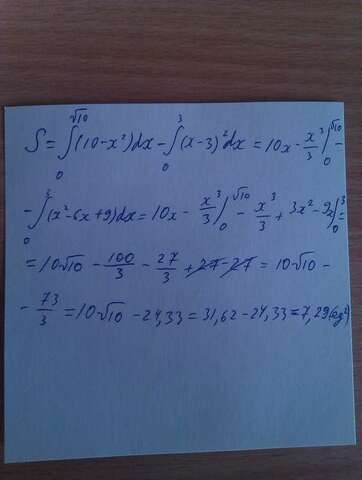 S = ∫₀^√10 (10-x²)dx - ∫₀³ (x-3)²dx = 10x - x³/3 |₀^√10 -
- ∫₀³ (x²-6x+9)dx = 10x - x³/3 |₀^√10 - x³/3 + 3x² - 9x |₀³ =
= 10√10 - 100/3 - 27/3 + 27 - 27 = 10√10 -
- 73/3 = 10√10 - 24,33 = 31,62 - 24,33 = 7,29 (ед²)